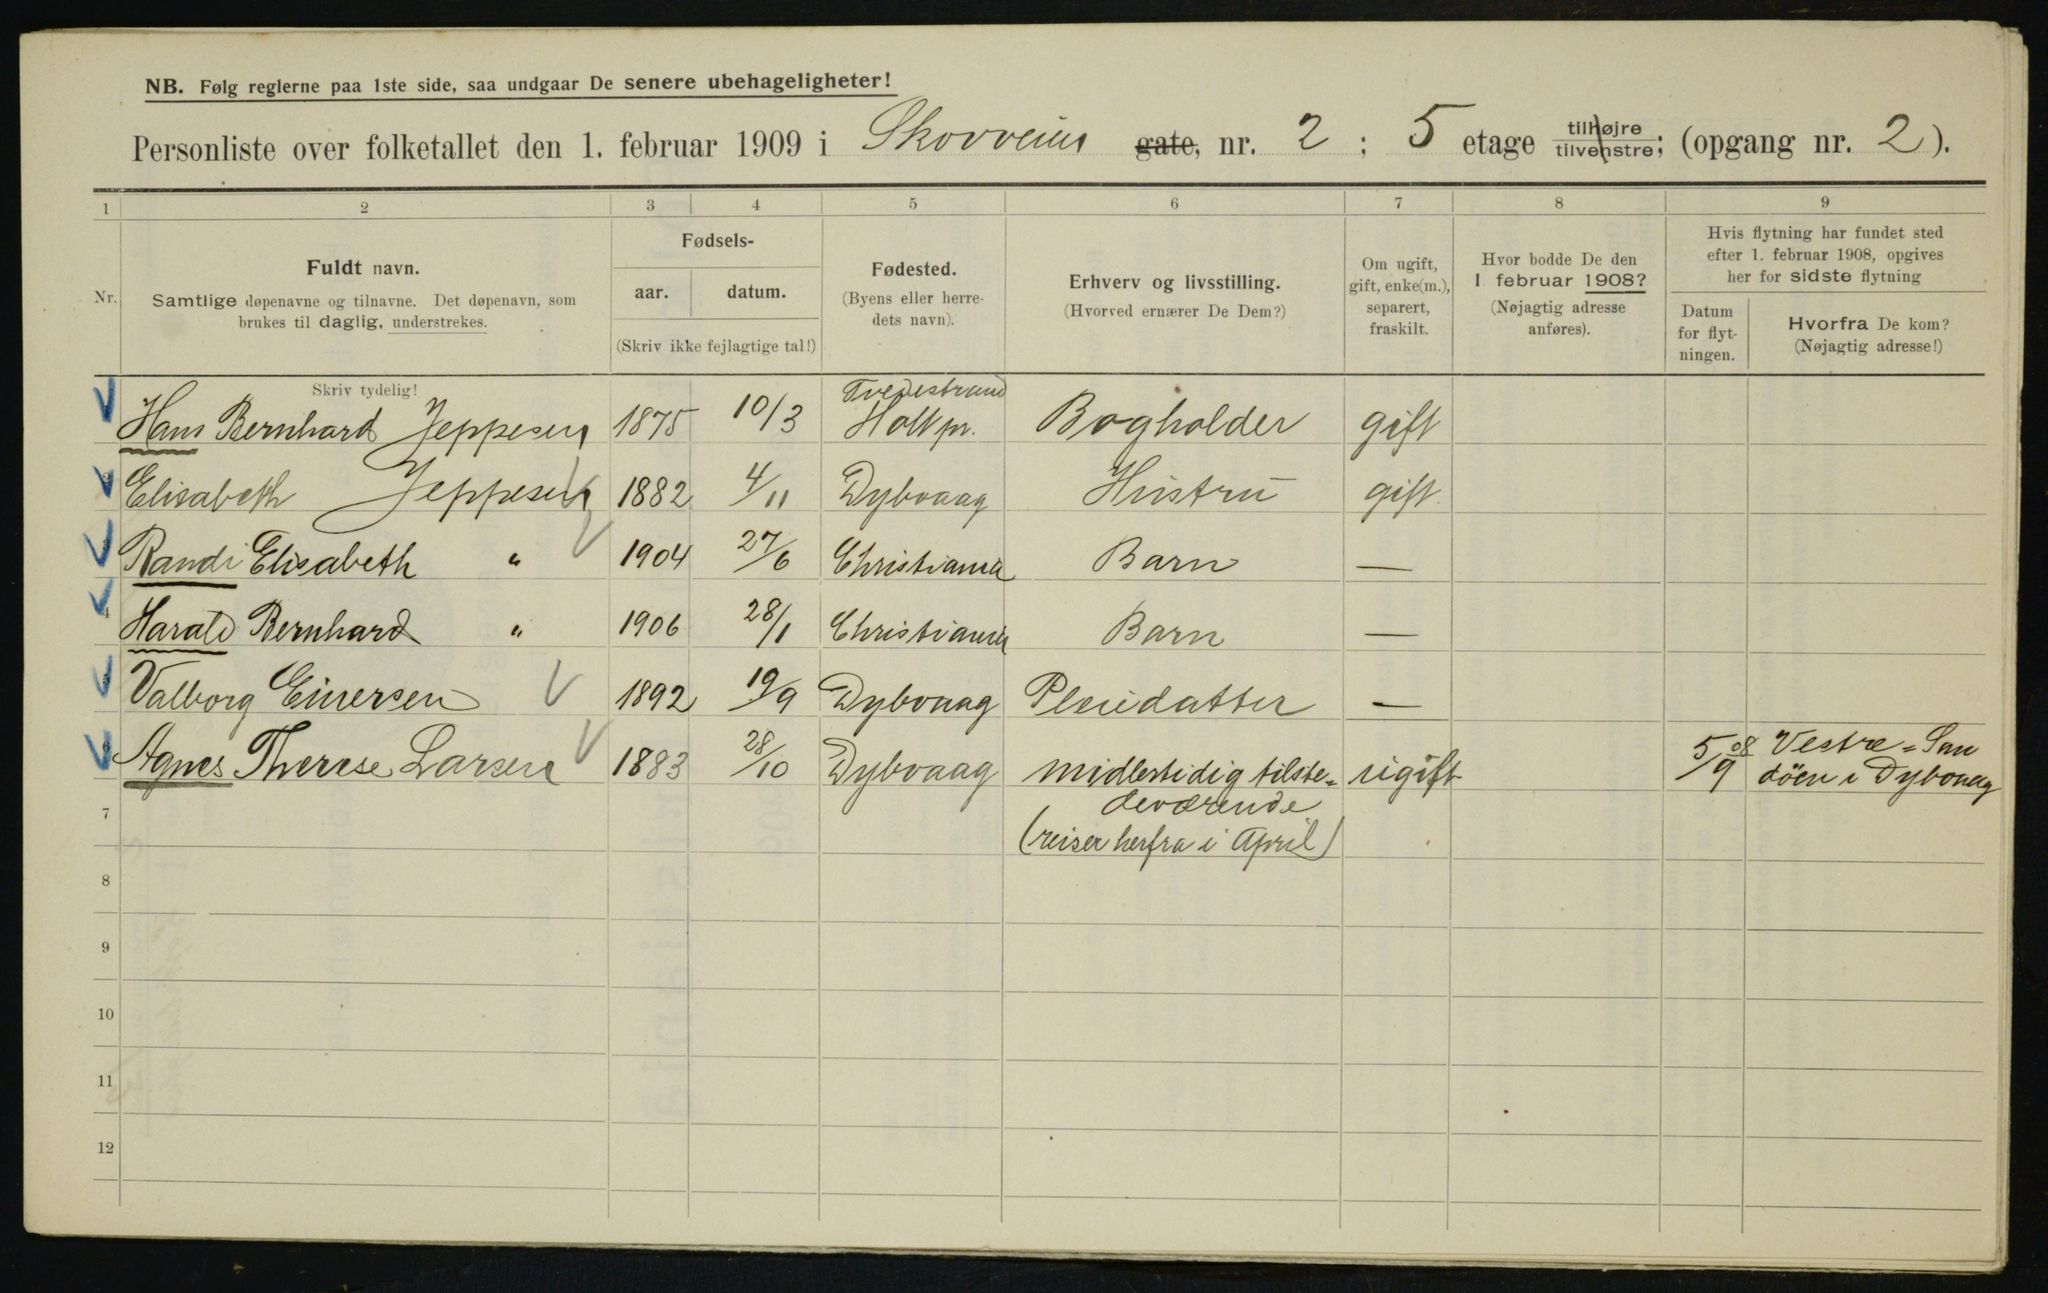 NB. Følg reglerne paa 1ste side, saa undgaar De senere ubehageligheter!
Personliste over folketallet den 1. februar 1909 i Skovveien gate, nr. 2 : 5 etage tilhøjre tilvenstre; (opgang nr. 2).
1 2 3 4 5 6 7 8 9
Nr. Fuldt navn. Samtlige døpenavne og tilnavne. Det døpenavn, som brukes til daglig, understrekes.
Fødsels- aar. datum. (Skriv ikke fejlagtige tal!)
Fødested. (Byens eller herredets navn).
Erhverv og livsstilling. (Hvorved ernærer De Dem?)
Om ugift, gift, enke(m.), separert, fraskilt.
Hvor bodde De den 1 februar 1908? (Nøjagtig adresse anføres).
Hvis flytning har fundet sted efter 1. februar 1908, opgives her for sidste flytning
Datum for flytningen. Hvorfra De kom? (Nøjagtig adresse!)
Skriv tydelig!
Hans Bernhard Jeppesen 1875 10/3 Tvedestrand Holt pr. Bogholder gift
2 Elisabeth Jeppesen 1882 4/11 Dybvaag Hustru gift.
3 Randi Elisabeth " 1904 27/6 Christiania Barn —
4 Harald Bernhard " 1906 28/1 Christiania Barn —
5 Valborg Einersen 1892 19/9 Dybvaag Pleiedatter —
6 Agnes Therese Larsen 1883 28/10 Dybvaag midlertidig tilste= ugift 5/9 08 Vestre=San
deværende døen i Dybvaag
7 (reiser herfra i April)
8
9
10
11
12